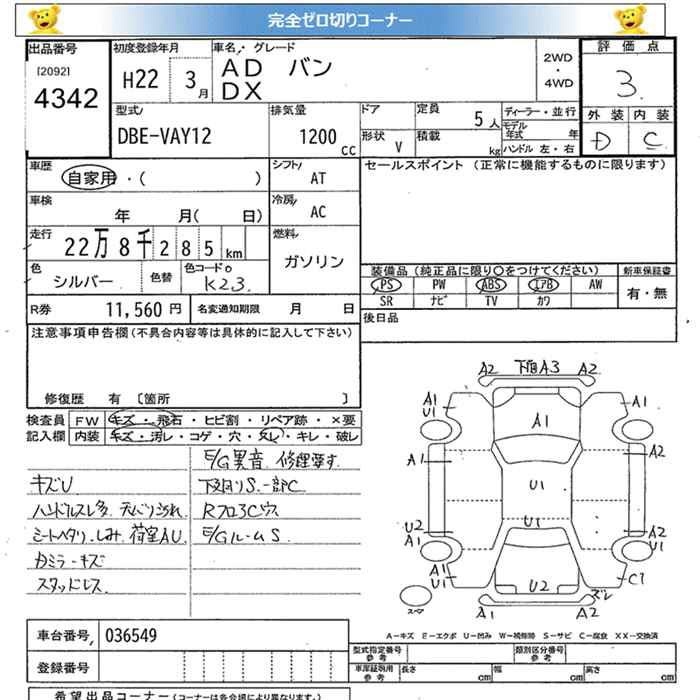 完全ゼロ切りコーナー
出品番号 初度登録年月 車名・グレード 評価点
[2092] 4342 H22 3月 AD バン DX 2WD・4WD 3
外装 内装
D C
型式 排気量 ドア 定員 5人 ディーラー・並行
DBE-VAY12 1200cc 形状 V 積載 kg モデル年式 年 ハンドル 左・右
車歴 シフト セールスポイント (正常に機能するものに限ります)
自家用・( ) AT
車検 冷房
年 月( 日) AC
走行 燃料
22万8千285km ガソリン
色 シルバー 色替 色コードNo K23
装備品 (純正品に限り○をつけてください) 新車保証書
PS PW ABS エアB AW 有・無
SR ナビ TV カワ
R券 11,560円 名変通知期限 月 日 後日品
注意事項申告欄(不具合内容等は具体的に記入して下さい)
修復歴 有 [箇所 ]
検査員 FW キズ・飛石・ヒビ割・リペア跡・×要
記入欄 内装 キズ・汚レ・コゲ・穴・スレ・キレ・破レ
E/G異音 修理要す
キズU 下廻りS、一部C
ハンドルスレ多 天バリ汚れ RフロアCウス
シートヘタリ、しみ、荷室AU E/GルームS
カミラーキズ
スタッドレス
A2 下廻A3 A2
A1 U1 A1
A1
A1 A2
U1
U2 A1 U1 A2 U1
A1 U1 U2 C1
スペア A1 ズレ A2
A-キズ E-エクボ U-凹み W-補修跡 S-サビ C-腐食 XX-交換済
車台番号 036549
型式指定番号 参考 類別区分番号 参考
登録番号
車庫証明用 参考 長さ cm 幅 cm 高さ cm
希望出品コーナー (コーナーは各会場により異なります。)